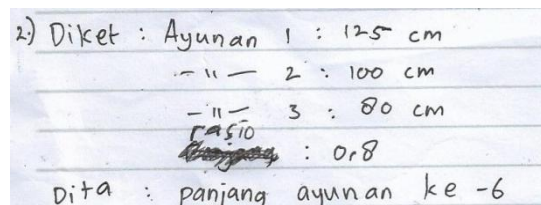 2.) Diket : Ayunan 1 : 125 cm
-"- 2 : 100 cm
-"- 3 : 80 cm
rasio
: 0,8
Dita : panjang ayunan ke -6